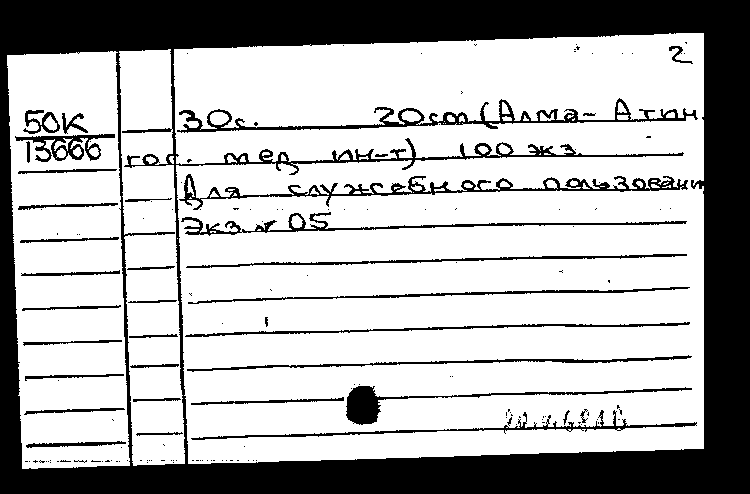 2
50К 30с. 20cm (Алма-Атин.
13666 гос. мед ин-т). 100 экз.
Для служебного пользовани
Экз. № 05